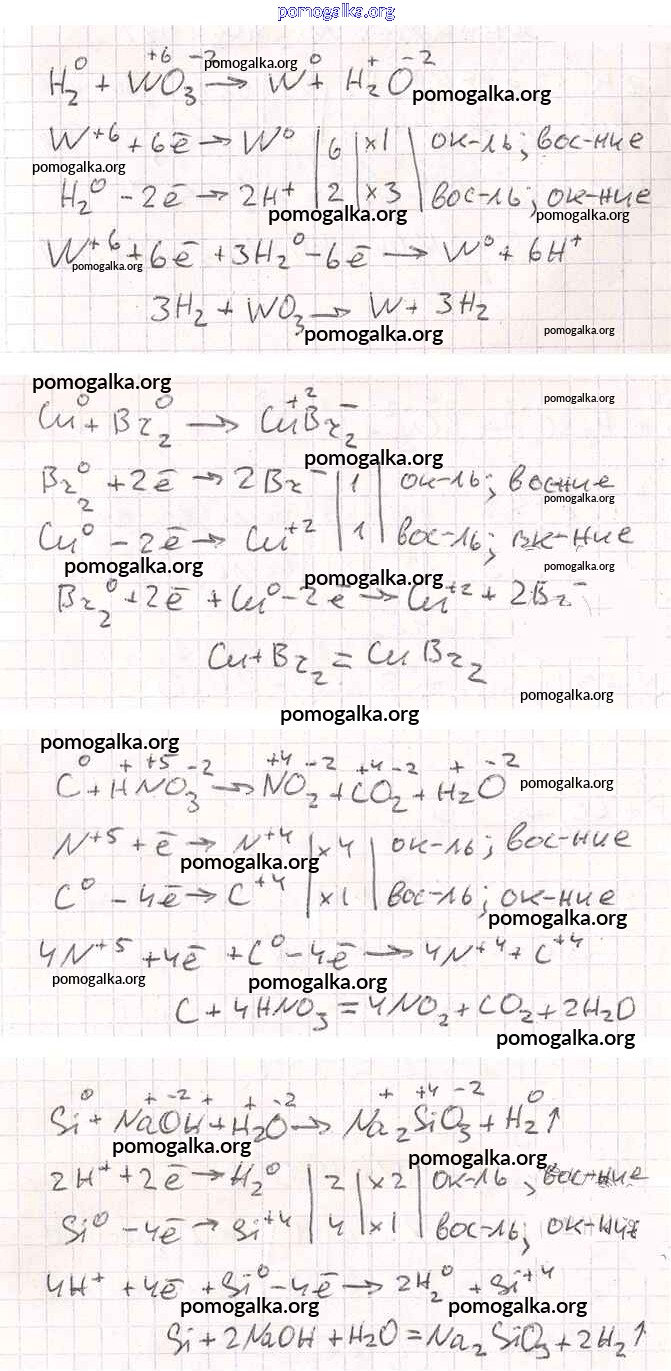 pomogalka.org
H₂⁰ + W⁺⁶O₃⁻² → W⁰ + H₂⁺O⁻²
pomogalka.org
pomogalka.org
W⁺⁶ + 6ē → W⁰ | 6 | ×1 | ок-ль; вос-ние
pomogalka.org
H₂⁰ - 2ē → 2H⁺ | 2 | ×3 | вос-ль; ок-ние
pomogalka.org
pomogalka.org
W⁺⁶ + 6ē + 3H₂⁰ - 6ē → W⁰ + 6H⁺
pomogalka.org
3H₂ + WO₃ → W + 3H₂
pomogalka.org
pomogalka.org
pomogalka.org
pomogalka.org
Cu⁰ + Br₂⁰ → Cu⁺²Br₂⁻
pomogalka.org
Br₂⁰ + 2ē → 2Br⁻ | 1 | ок-ль; восние
pomogalka.org
Cu⁰ - 2ē → Cu⁺² | 1 | вос-ль; ок-ние
pomogalka.org
pomogalka.org
pomogalka.org
Br₂⁰ + 2ē + Cu⁰ - 2ē → Cu⁺² + 2Br⁻
Cu + Br₂ = CuBr₂
pomogalka.org
pomogalka.org
pomogalka.org
C⁰ + H⁺N⁺⁵O₃⁻² → N⁺⁴O₂⁻² + C⁺⁴O₂⁻² + H₂⁺O⁻²
pomogalka.org
N⁺⁵ + ē → N⁺⁴ | ×4 | ок-ль; вос-ние
pomogalka.org
C⁰ - 4ē → C⁺⁴ | ×1 | вос-ль; ок-ние
pomogalka.org
4N⁺⁵ + 4ē + C⁰ - 4ē → 4N⁺⁴ + C⁺⁴
pomogalka.org
pomogalka.org
C + 4HNO₃ = 4NO₂ + CO₂ + 2H₂O
pomogalka.org
Si⁰ + Na⁺O⁻²H⁺ + H₂⁺O⁻² → Na₂⁺Si⁺⁴O₃⁻² + H₂⁰↑
pomogalka.org
pomogalka.org
2H⁺ + 2ē → H₂⁰ | 2 | ×2 | ок-ль, вос-ние
Si⁰ - 4ē → Si⁺⁴ | 4 | ×1 | вос-ль; ок-ние
4H⁺ + 4ē + Si⁰ - 4ē → 2H₂⁰ + Si⁺⁴
pomogalka.org
pomogalka.org
Si + 2NaOH + H₂O = Na₂SiO₃ + 2H₂↑